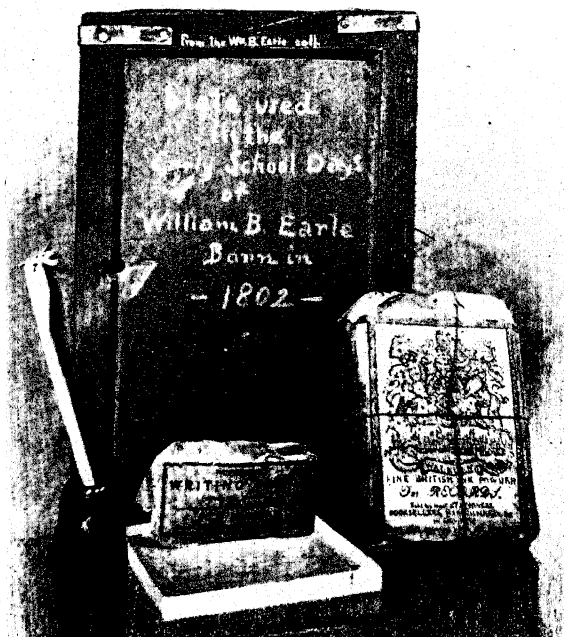 From the Wm. B. Earle coll.
Slate used
in the
Early School Days
of
William B. Earle
Born in
- 1802 -
WRITING
FINE BRITISH INK POWDER
For RECORDS.
BOOKSELLERS